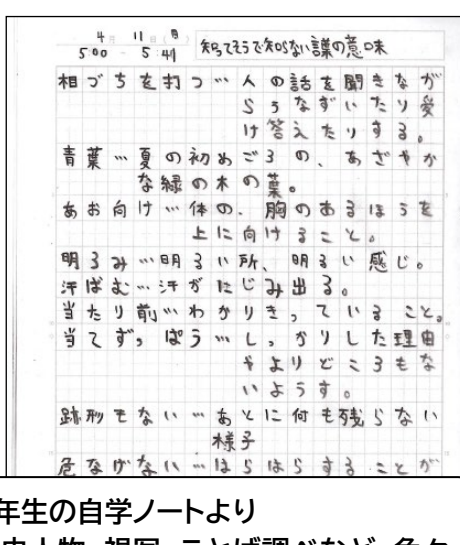 4月 11日(日)
5:00 - 5:41
知ってそうで知らない言葉の意味
相づちを打つ…人の話を聞きなが
らうなずいたり受
け答えたりする。
青葉…夏の初めごろの、あざやか
な緑の木の葉。
あお向け…体の、胸のあるほうを
上に向けること。
明るみ…明るい所、明るい感じ。
汗ばむ…汗がにじみ出る。
当たり前…わかりきっていること。
当てずっぽう…しっかりした理由
やよりどころもな
いようす。
跡形もない…あとに何も残らない
様子
危なげない…はらはらすることが
年生の自学ノートより